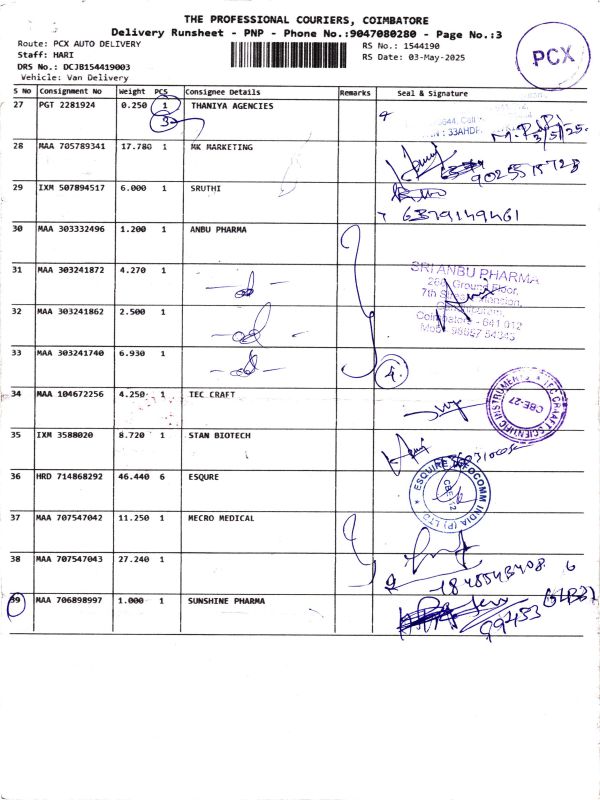 THE PROFESSIONAL COURIERS, COIMBATORE
Delivery Runsheet - PNP - Phone No.:9047080280 - Page No.:3
Route: PCX AUTO DELIVERY
Staff: HARI
DRS No.: DCJB154419003
Vehicle: Van Delivery
RS No.: 1544190
RS Date: 03-May-2025
PCX
S No Consignment No Weight PCS Consignee Details Remarks Seal & Signature
27 PGT 2281924 0.250 1 THANIYA AGENCIES
3
3/5/25
28 MAA 705789341 17.780 1 MK MARKETING
9025515728
29 IXM 507894517 6.000 1 SRUTHI
6379149461
30 MAA 303332496 1.200 1 ANBU PHARMA
31 MAA 303241872 4.270 1 -do-
SRI ANBU PHARMA
Ground Floor,
7th Street Extension,
Coimbatore - 641 012
32 MAA 303241862 2.500 1 -do-
33 MAA 303241740 6.930 1 -do-
4.
34 MAA 104672256 4.250 1 TEC CRAFT
TEC CRAAFT SCIENTIFIC INSTRUMENTS
CBE-27
35 IXM 3588020 8.720 1 STAN BIOTECH
36 HRD 714868292 46.440 6 ESQURE
ESQUIRE INFOCOMM INDIA (P) LTD
37 MAA 707547042 11.250 1 MECRO MEDICAL
38 MAA 707547043 27.240 1
39 MAA 706898997 1.000 1 SUNSHINE PHARMA
99453